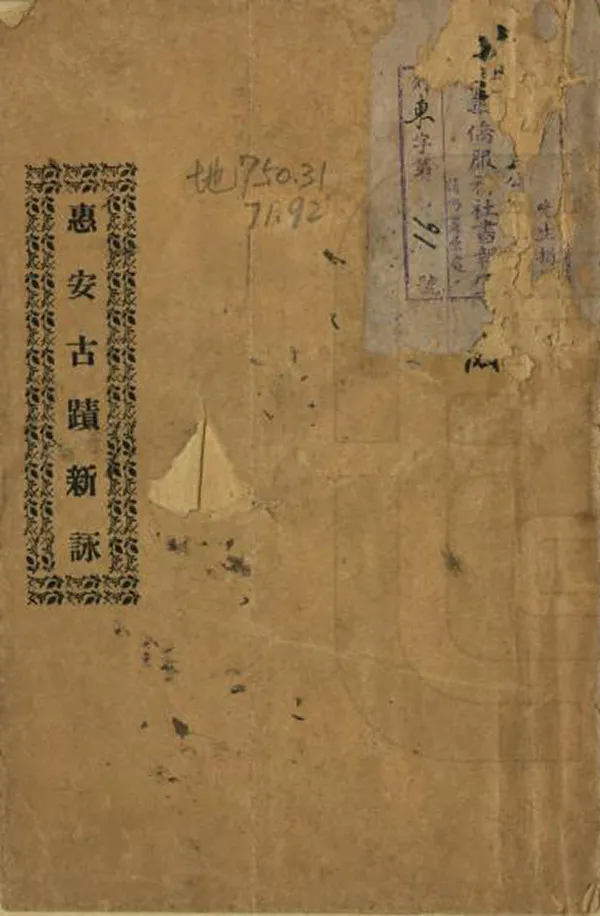 惠安古蹟新詠
地750.31
7192
僑服務社書報
東字第
91
號